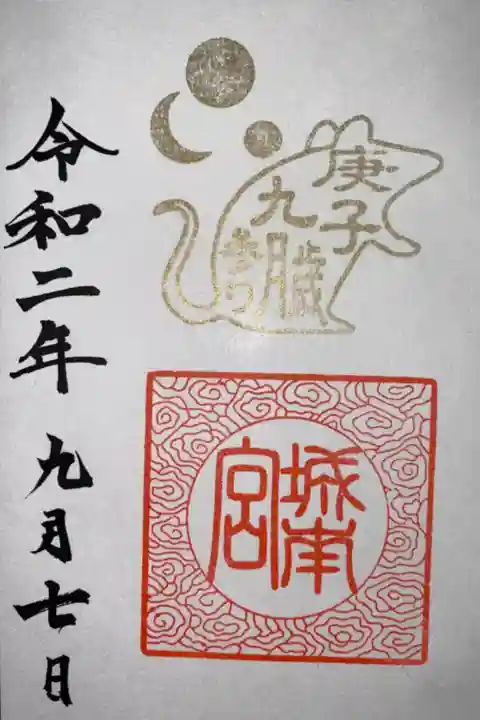 庚子歳
九月
城南
宮
令和二年 九月七日